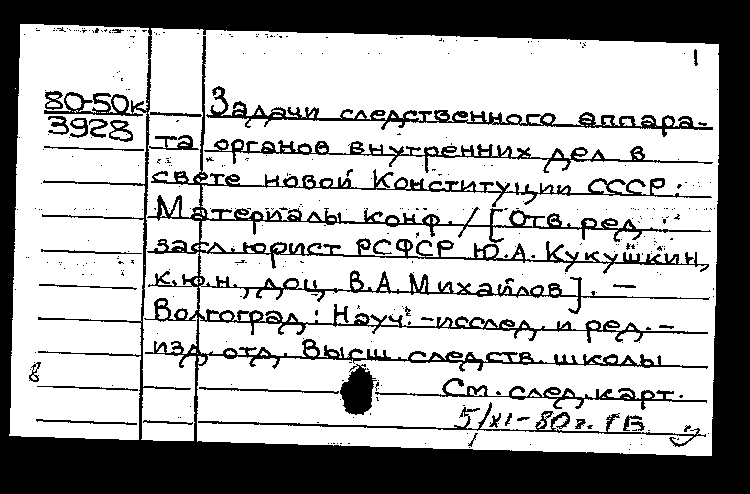 1
80-50к
3928
Задачи следственного аппара-
та органов внутренних дел в
свете новой Конституции СССР:
Материалы конф. / [Отв. ред.:
засл. юрист РСФСР Ю.А. Кукушкин,
к.ю.н., доц. В.А. Михайлов]. —
Волгоград: Науч.-исслед. и ред.-
изд. отд. Высш. следств. школы
8
См. след. карт.
5/XI-80г.